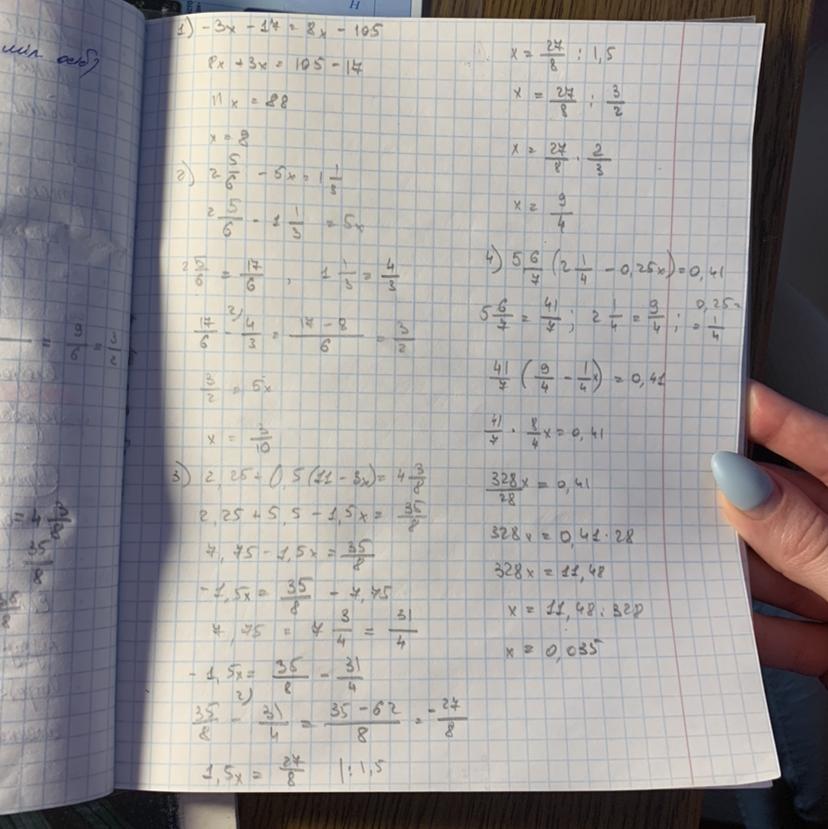 1) -3x - 17 = 8x - 105
8x + 3x = 105 - 17
11x = 88
x = 8
2) 2 5/6 - 5x = 1 1/3
2 5/6 - 1 1/3 = 5x
2 5/6 = 17/6 , 1 1/3 = 4/3
17/6 - 2) 4/3 = (17 - 8)/6 = 3/2
3/2 = 5x
x = 3/10
3) 2,25 + 0,5(11 - 3x) = 4 3/8
2,25 + 5,5 - 1,5x = 35/8
7,75 - 1,5x = 35/8
-1,5x = 35/8 - 7,75
7,75 = 7 3/4 = 31/4
-1,5x = 35/8 - 31/4
35/8 - 2) 31/4 = (35 - 62)/8 = -27/8
1,5x = 27/8 | : 1,5
x = 27/8 : 1,5
x = 27/8 : 3/2
x = 27/8 · 2/3
x = 9/4
4) 5 6/7 (2 1/4 - 0,25x) = 0,41
5 6/7 = 41/7 ; 2 1/4 = 9/4 ; 0,25 = = 1/4
41/7 (9/4 - 1/4 x) = 0,41
41/7 · 8/4 x = 0,41
328x/28 = 0,41
328x = 0,41 · 28
328x = 11,48
x = 11,48 : 328
x = 0,035
= 9/6 = 3/2
= 4 3/8
35/8